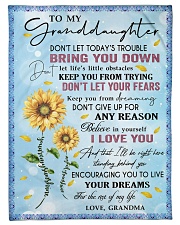 TO MY
Granddaughter
DON'T LET TODAY'S TROUBLE
BRING YOU DOWN
Don't let life's little obstacles
KEEP YOU FROM TRYING
DON'T LET YOUR FEARS
Keep you from dreaming
DON'T GIVE UP FOR
ANY REASON
Believe in yourself
I LOVE YOU
And that I'll be right here
standing behind you
ENCOURAGING YOU TO LIVE
YOUR DREAMS
For the rest of my life
LOVE, GRANDMA